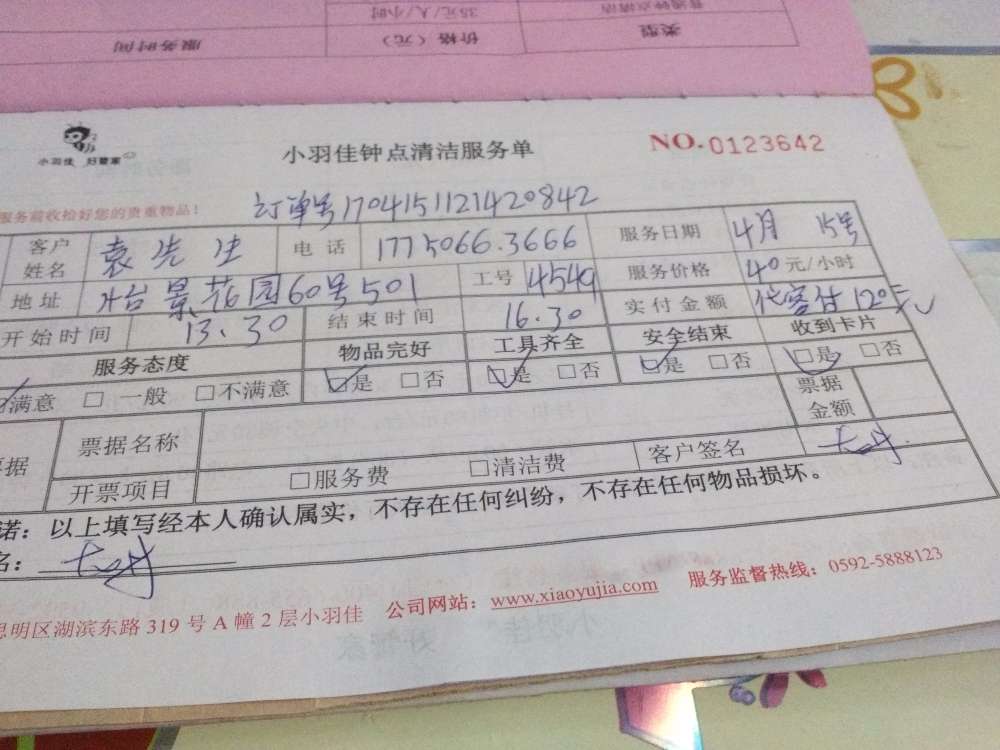 服务时间 价格（元） 类型
35元/人/小时 普通钟点清洁
小羽佳 好管家
小羽佳钟点清洁服务单 NO. 0123642
服务前收捡好您的贵重物品！ 订单号1704151121420842
客户姓名 袁先生 电话 1775066.3666 服务日期 4月15号
地址 怡景花园60号501 工号 4549 服务价格 40元/小时
开始时间 13.30 结束时间 16.30 实付金额 代客付120元
服务态度 物品完好 工具齐全 安全结束 收到卡片
满意 □ 一般 □不满意 □是 □否 □是 □否 □是 □否 □是 □否
据 票据名称 票据金额
开票项目 □服务费 □清洁费 客户签名
诺：以上填写经本人确认属实，不存在任何纠纷，不存在任何物品损坏。
名：
思明区湖滨东路 319 号 A 幢 2 层小羽佳 公司网站：www.xiaoyujia.com 服务监督热线：0592-5888123